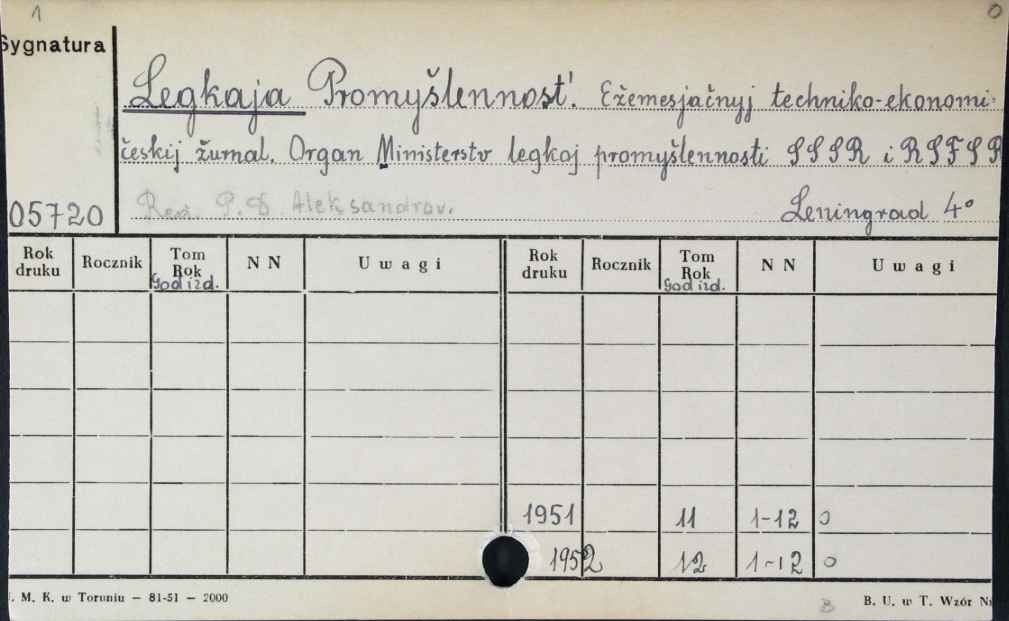 1
0
Sygnatura
Legkaja Promyšlennost'. Ežemesjačnyj techniko-ekonomi-
českij žurnal. Organ Ministerstv legkoj promyšlennosti SSSR i RSFSR
05720
Red. P. D. Aleksandrov.
Leningrad 4°
Rok druku Rocznik Tom Rok God izd. N N Uwagi Rok druku Rocznik Tom Rok God izd. N N Uwagi
1951 11 1-12 0
1952 12 1-12 0
. M. K. w Toruniu — 81-51 — 2000
B
B. U. w T. Wzór Nr